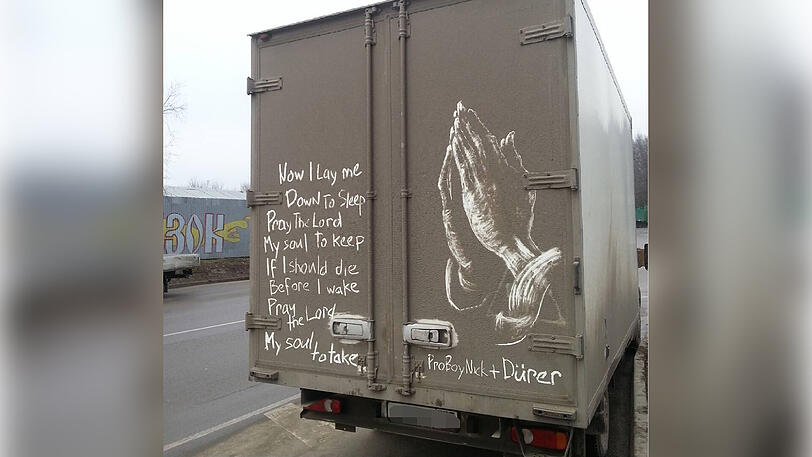 ЗОК
Now I Lay me
Down To Sleep
Pray The Lord
My soul to keep
If I should die
Before I wake
Pray
the Lord
My soul
to take
ProBoyNick + Dürer